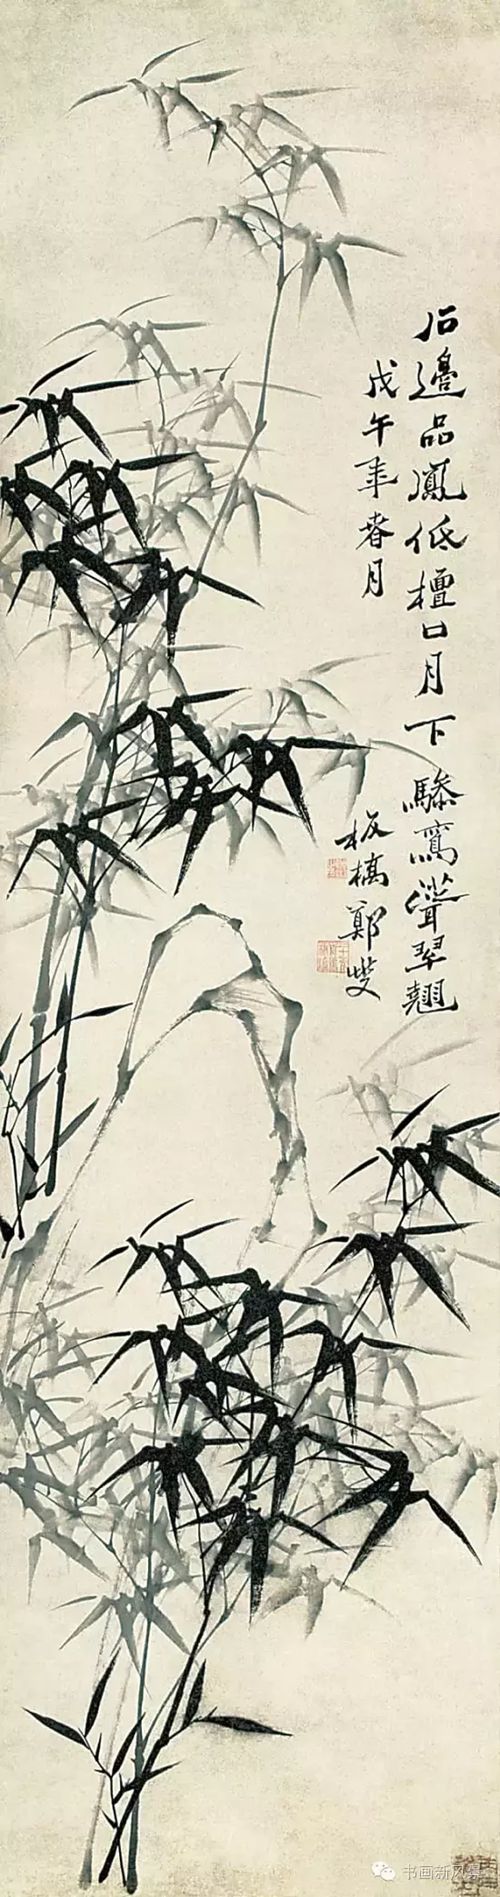 石邊品鳳低檀口月下驂鸞聳翠翹
戊午年春月
板橋鄭燮
书画新风